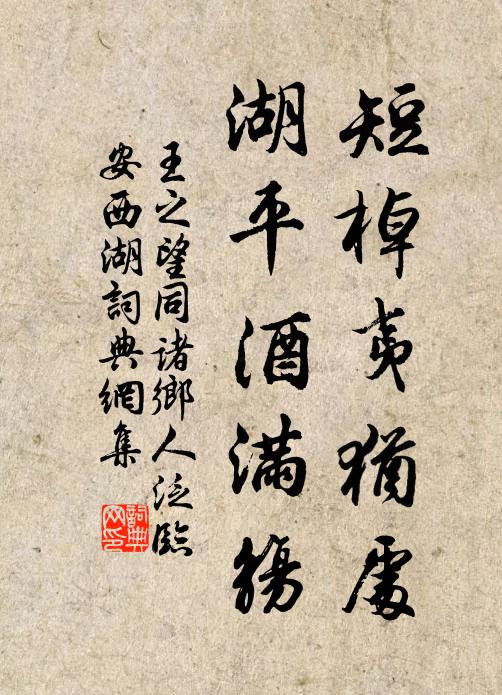 短棹夷猶處
湖平酒滿觴
王之望同諸鄉人泛臨
安西湖詞典網集
詞典網印